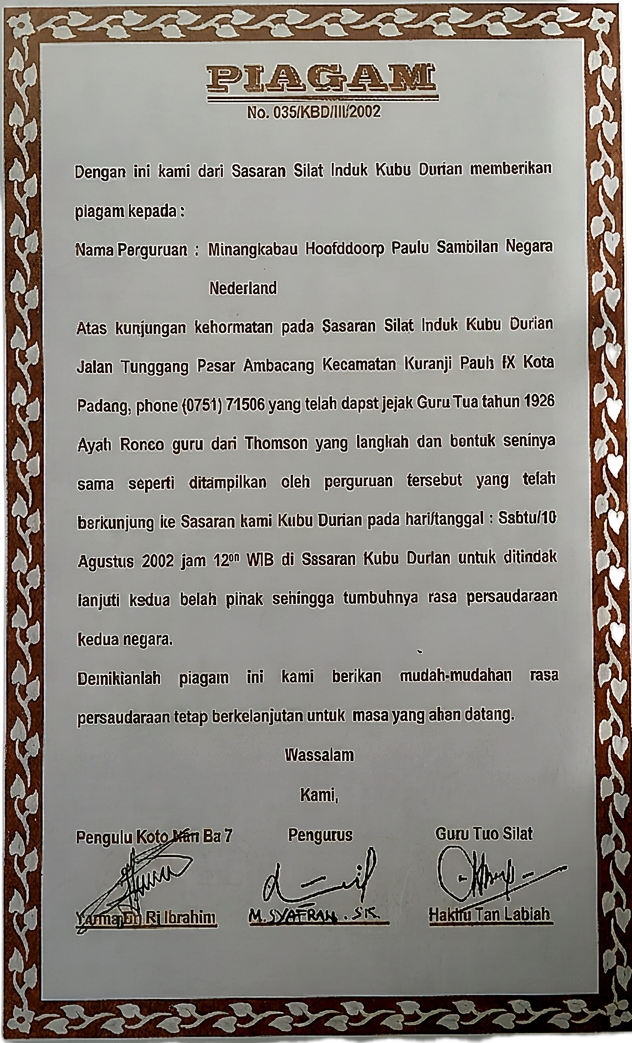 PIAGAM
No. 035/KBD/III/2002
Dengan ini kami dari Sasaran Silat Induk Kubu Durian memberikan
piagam kepada :
Nama Perguruan : Minangkabau Hoofddoorp Paulu Sambilan Negara
Nederland
Atas kunjungan kehormatan pada Sasaran Silat Induk Kubu Durian
Jalan Tunggang Pasar Ambacang Kecamatan Kuranji Pauh IX Kota
Padang, phone (0751) 71506 yang telah dapat jejak Guru Tua tahun 1926
Ayah Ronco guru dari Thomson yang langkah dan bentuk seninya
sama seperti ditampilkan oleh perguruan tersebut yang telah
berkunjung ke Sasaran kami Kubu Durian pada hari/tanggal : Sabtu/10
Agustus 2002 jam 12⁰⁰ WIB di Sasaran Kubu Durian untuk ditindak
lanjuti kedua belah pihak sehingga tumbuhnya rasa persaudaraan
kedua negara.
Demikianlah piagam ini kami berikan mudah-mudahan rasa
persaudaraan tetap berkelanjutan untuk masa yang ahan datang.
Wassalam
Kami,
Pengulu Koto Ba 7 Pengurus Guru Tuo Silat
Rj Ibrahim M. SYAFRAN. SK. Tan Labiah